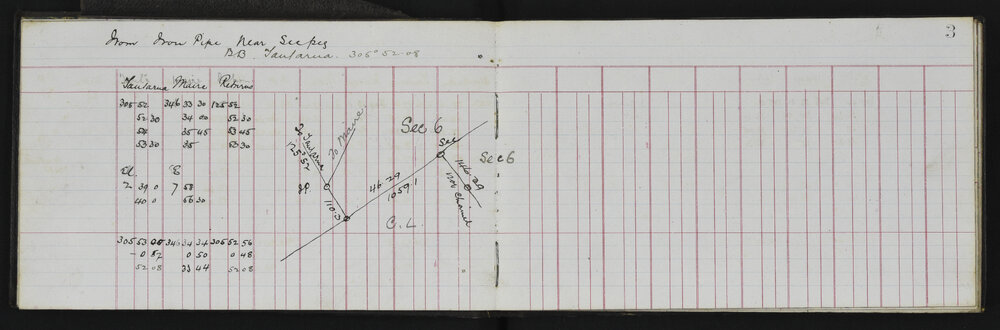 3
From Iron Pipe Near Sec peg
BB Tautarua. 305° 52-08
Tautarua Maire Returns
305 52 346 33 30 125 52
52 30 34 00 52 30
54 35 45 53 45
53 30 35 53 30
2 39 0 7 58
40 0 56 30
305 53 00 346 34 34 305 52 56
-0 52 0 50 0 48
52 08 33 44 52 08
To Tautarua
125° 52
To Maire
IP
110.3
46-29
1059.1
Sec 6
Sec
Sec 6
146-29
Chained
C.L.